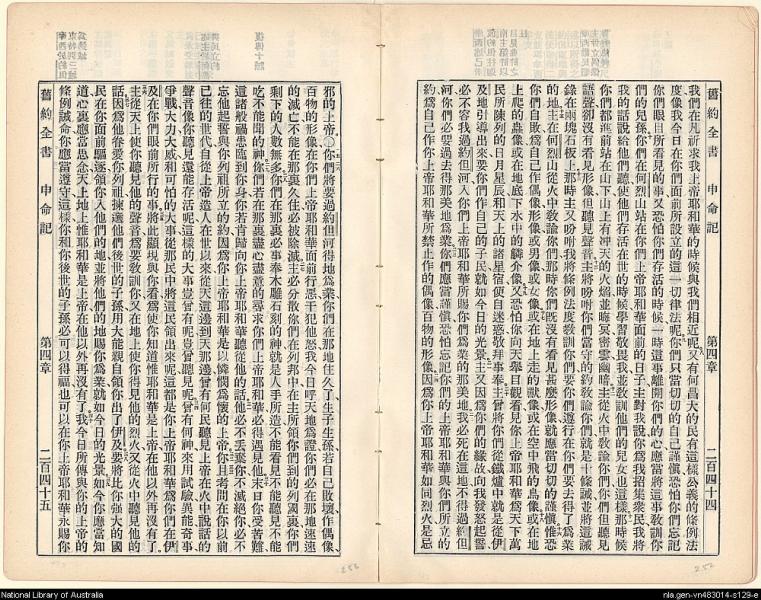 舊約全書 申命記 第四章 二百四十四
我們在凡祈求我上帝耶和華的時候與我們相近呢又有何昌大的民有這樣公義的條例法
度像我今日在你們面前所設立的這一切律法呢你們只當切切的自己謹慎恐怕你們忘記
你們眼目所看見的事又恐怕你們存活的時候一時這事離開你們的心應當將這事教訓你
們的兒孫你們在何烈山站在你們上帝耶和華面前的日子主對我說你爲我招集衆民我將
我的話說給他們聽使他們存活在世的時候學習敬畏我並教訓他們的兒女也這樣那時候
你們都進前站在山下山上有冲天的火焰並晦冥密雲幽暗主從火中敎諭你們你們但聽見
語聲卻沒有看見形像但聽見聲音主將吩咐你們當守的約敎諭你們就是十條誡並將這誡
錄在兩塊石板上那時主又吩咐我將條例法度敎訓你們要你們遵行在你們要去得了爲業
的地主在何烈山從火中敎諭你們那時你們旣沒有看見甚麽形像就應當切切的謹慎惟恐
你們自敗爲自己作偶像形像或男像或女像或地上走的獸像或在空中飛的鳥像或在地
上爬的蟲像或在地底下水中的鱗介像又恐怕你向天舉目觀看見你上帝耶和華爲天下萬
民所陳列的日月星辰和天上的諸星宿便自迷惑敬拜事奉主曾將你們從鐵爐中就是從伊
及地引導出來要你們作自己的子民就如今日的光景主又因爲你們的緣故向我發怒起誓
必不容我過約但河入你們上帝耶和華所賜你們爲業的那美地我必死在這地不得過約但
河你們必要過去得那美地爲業你們應當謹慎恐怕忘記你們的上帝耶和華與你們所立的
約爲自己作你上帝耶和華所禁止作的偶像百物的形像因爲你上帝耶和華如同烈火是忌
邪的上帝○你們將要過約但河得地爲業你們在那地住久了生子生孫若自己敗壞作偶像
百物的形像在你們上帝耶和華面前行惡干犯他怒我今日呼天地爲證你們必在那地速速
的滅亡不能在那裏久住必被除滅主必分散你們在列邦中在主所領你們到的列國裏你們
剩下的人數無多你們在那裏必事奉木雕石刻的神就是人手所造不能看見不能聽見不能
吃不能聞的神你們若在那裏盡心盡意的尋求你們上帝耶和華必得遇見他末日你受苦難
這諸般禍患臨到你身你若肯歸向你上帝耶和華聽從他的話他必不丢棄你不滅絕你必不
忘他起誓與你列祖所立的約因爲你上帝耶和華是以憐憫爲懷的上帝你且考問在你以前
已往的世代自從上帝造人在世以來從天這邊到天那邊曾有何民聽見上帝在火中說話的
聲音像你聽見還能存活呢這樣的大事豈曾有呢豈曾聽見呢曾有何神來用試驗異能奇事
爭戰大力大威和可怕的大事從那民中將這民領出來呢這都是你上帝耶和華爲你們在伊
及在你們眼前所行的事將此顯現與你看爲使你知道惟耶和華是上帝在他以外再沒有了
主從天上使你聽見他的聲音爲要敎訓你又在地上使你得見他的烈火又從火中聽見他的
話因爲他眷愛你列祖揀選他們後世的子孫用大能親自領你出了伊及要將比你強大的國
民在你面前驅逐領你入他們的地並將他們的地賜你爲業就如今日的光景如今你應當知
道心裏應當思念天上地上惟耶和華是上帝在他以外再沒有了我今日所傳與你的上帝的
條例誡命你應當遵守這樣你和你後世的子孫必可以得福也可以在你上帝耶和華永賜你
舊約全書 申命記 第四章 二百四十五
252
National Library of Australia
nla.gen-vn483014-s129-e